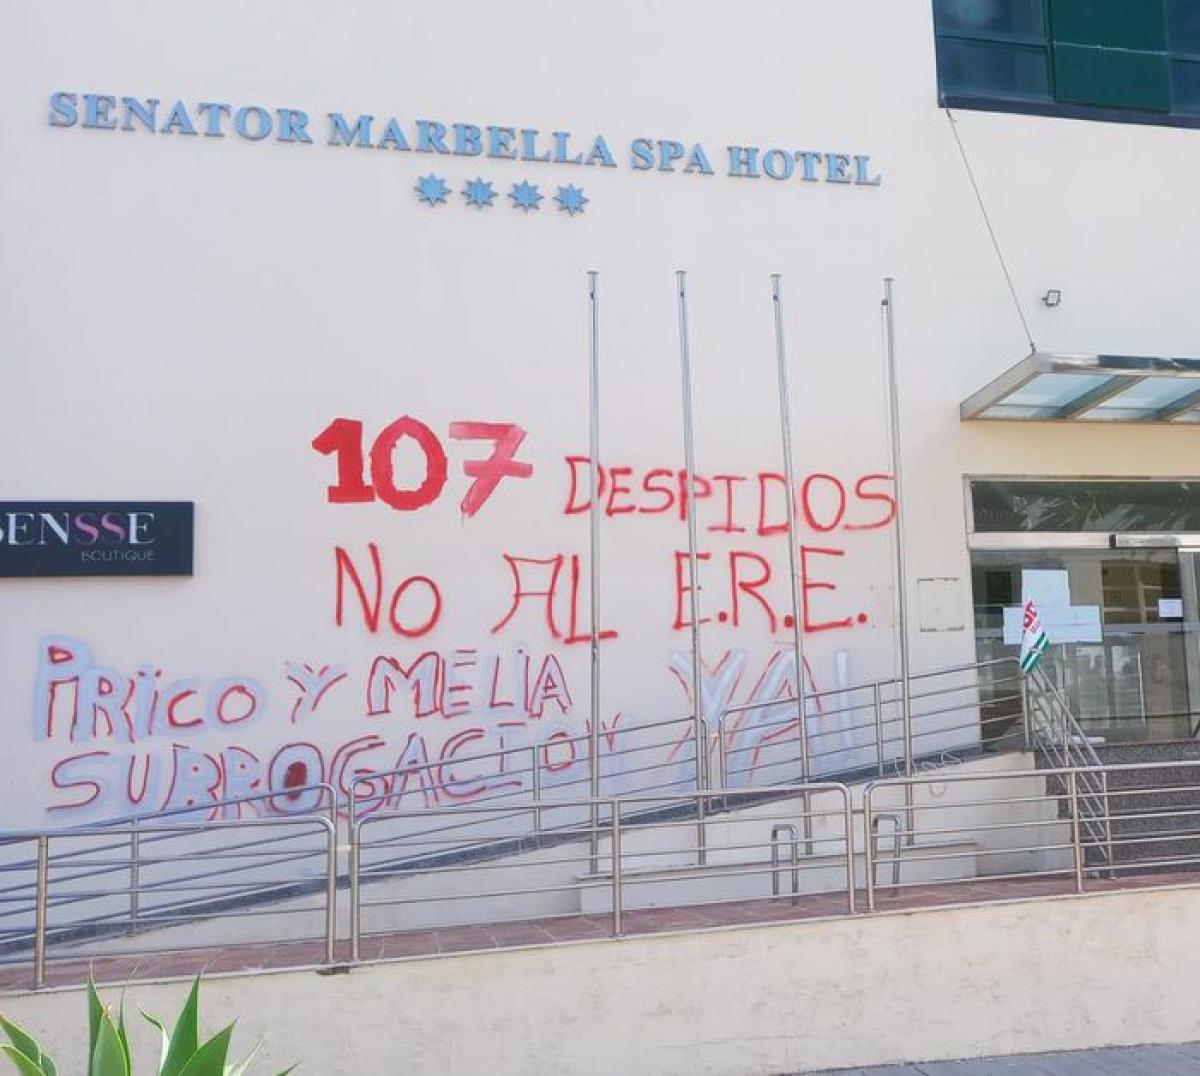 SENATOR MARBELLA SPA HOTEL
107 DESPIDOS
SENSSE
BOUTIQUE
NO AL E.R.E.
PIRICO Y MELIA YA!
SURROGACION